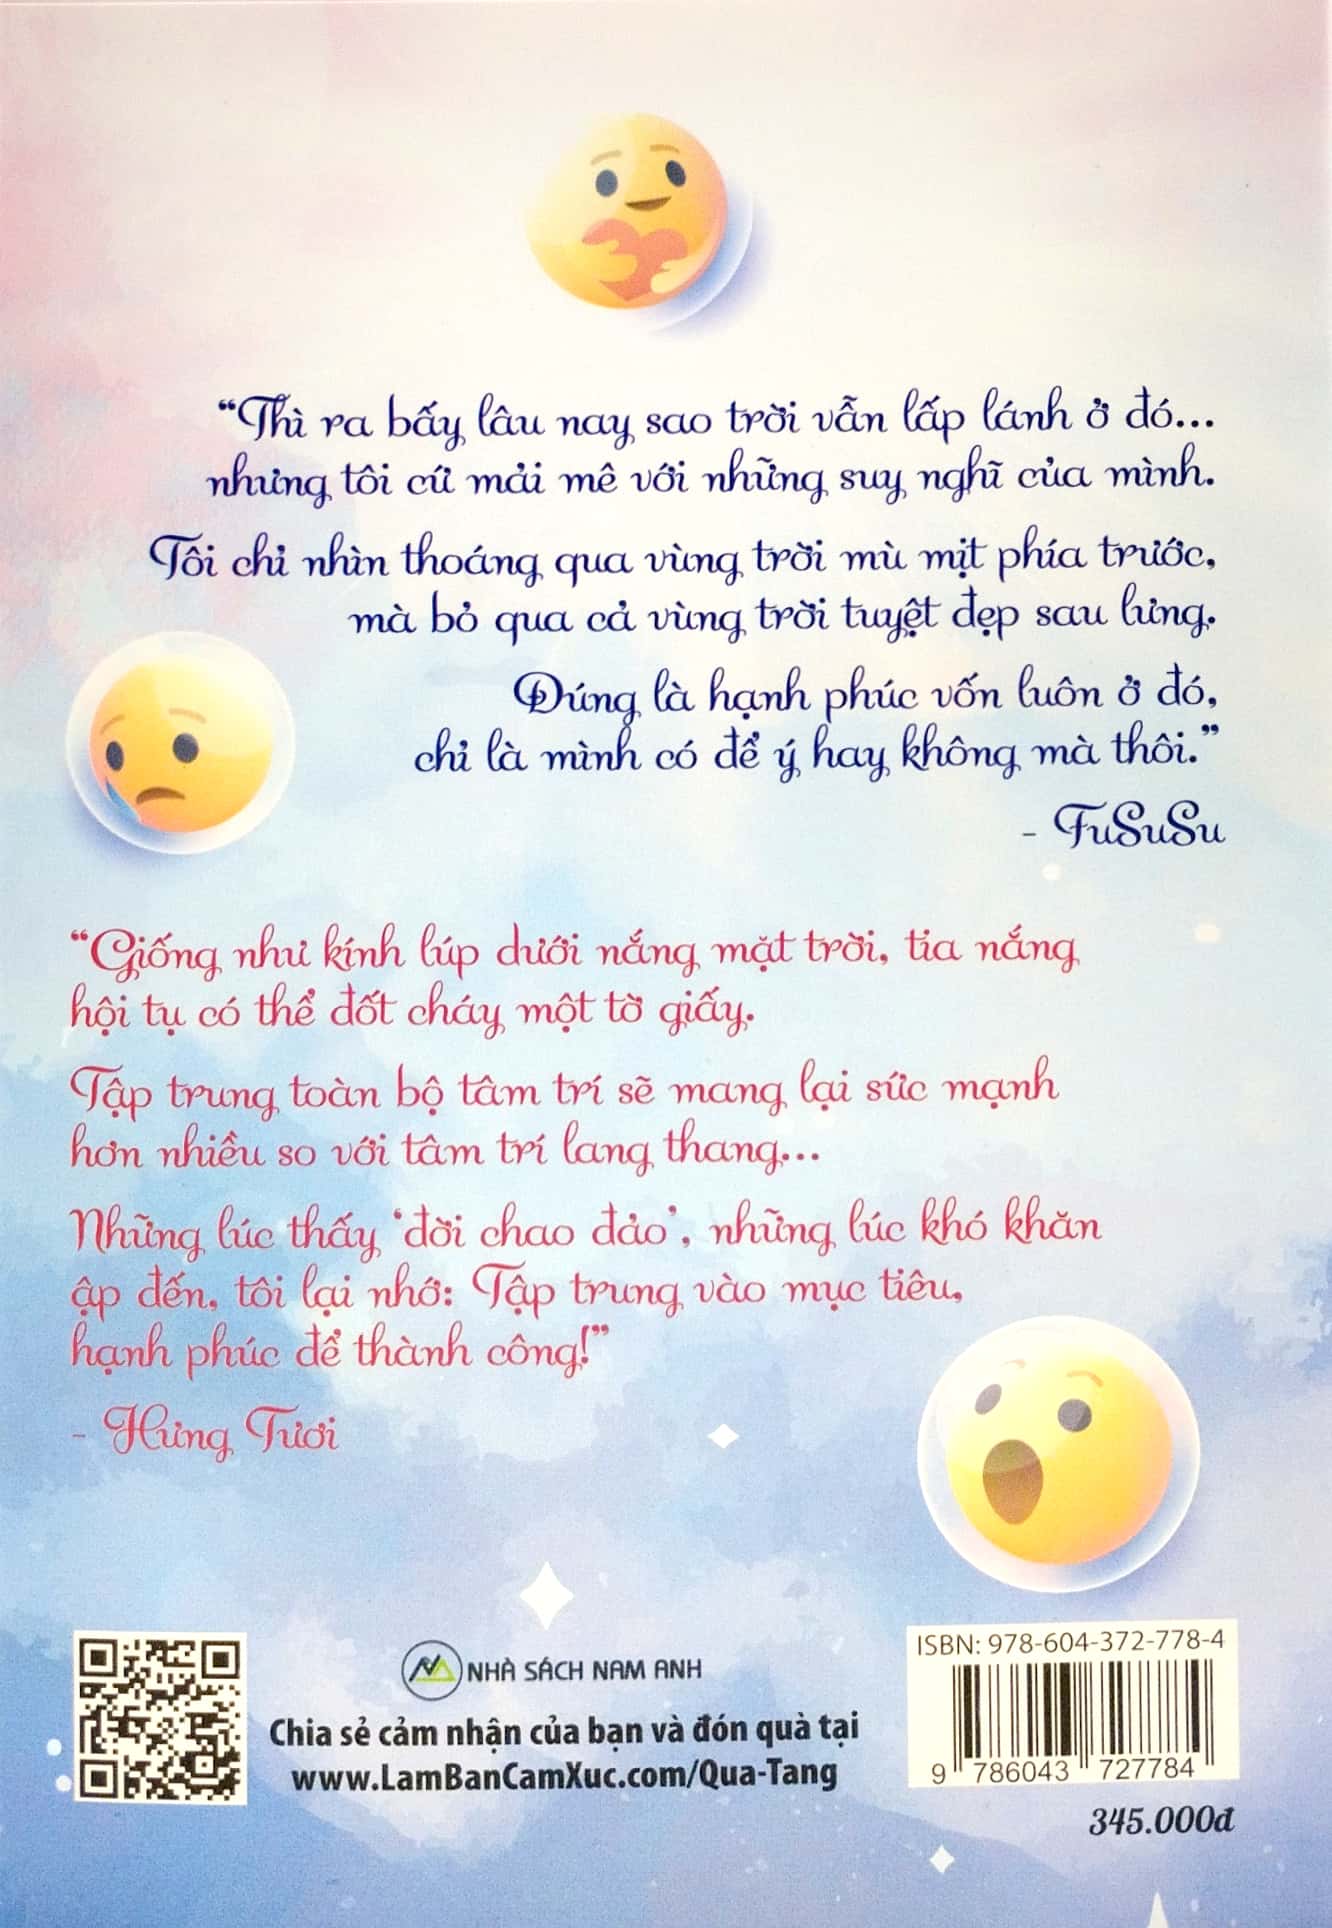 “Thì ra bấy lâu nay sao trời vẫn lấp lánh ở đó...
nhưng tôi cứ mải mê với những suy nghĩ của mình.
Tôi chỉ nhìn thoáng qua vùng trời mù mịt phía trước,
mà bỏ qua cả vùng trời tuyệt đẹp sau lưng.
Đúng là hạnh phúc vốn luôn ở đó,
chỉ là mình có để ý hay không mà thôi.”
- FuSuSu
“Giống như kính lúp dưới nắng mặt trời, tia nắng
hội tụ có thể đốt cháy một tờ giấy.
Tập trung toàn bộ tâm trí sẽ mang lại sức mạnh
hơn nhiều so với tâm trí lang thang...
Những lúc thấy ‘đời chao đảo’, những lúc khó khăn
ập đến, tôi lại nhớ: Tập trung vào mục tiêu,
hạnh phúc để thành công!”
- Hưng Tươi
NHÀ SÁCH NAM ANH
Chia sẻ cảm nhận của bạn và đón quà tại
www.LamBanCamXuc.com/Qua-Tang
ISBN: 978-604-372-778-4
9 786043 727784
345.000đ